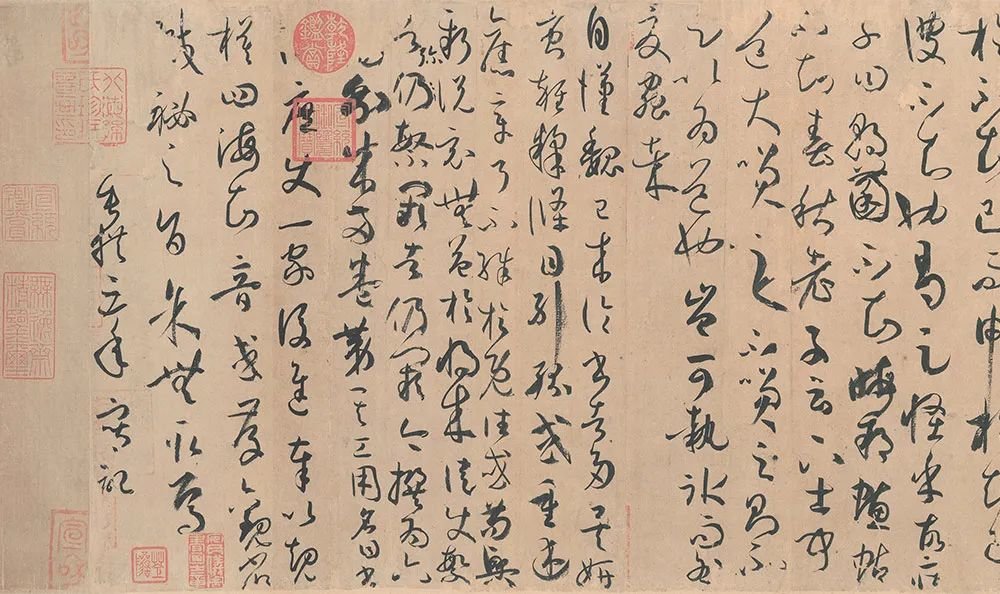 於不知己而申於知己
彼不知也曷足怪乎故莊
子曰朝菌不知晦朔蟪蛄
不知春秋老子云下士聞
道大笑之不笑之則不
足以為道也豈可執冰而咎
夏蟲哉
自漢魏已來論書者多矣妍
蚩雜糅條目糾紛或重述
舊章了不殊於既往或苟興
新說竟無益於將來徒使繁
者彌繁闕者仍闕今撰為六
篇分成兩卷第其工用名曰書
譜庶使一家後進奉以規
模四海知音或存觀省
緘秘之旨余無取焉
垂拱三年寫記